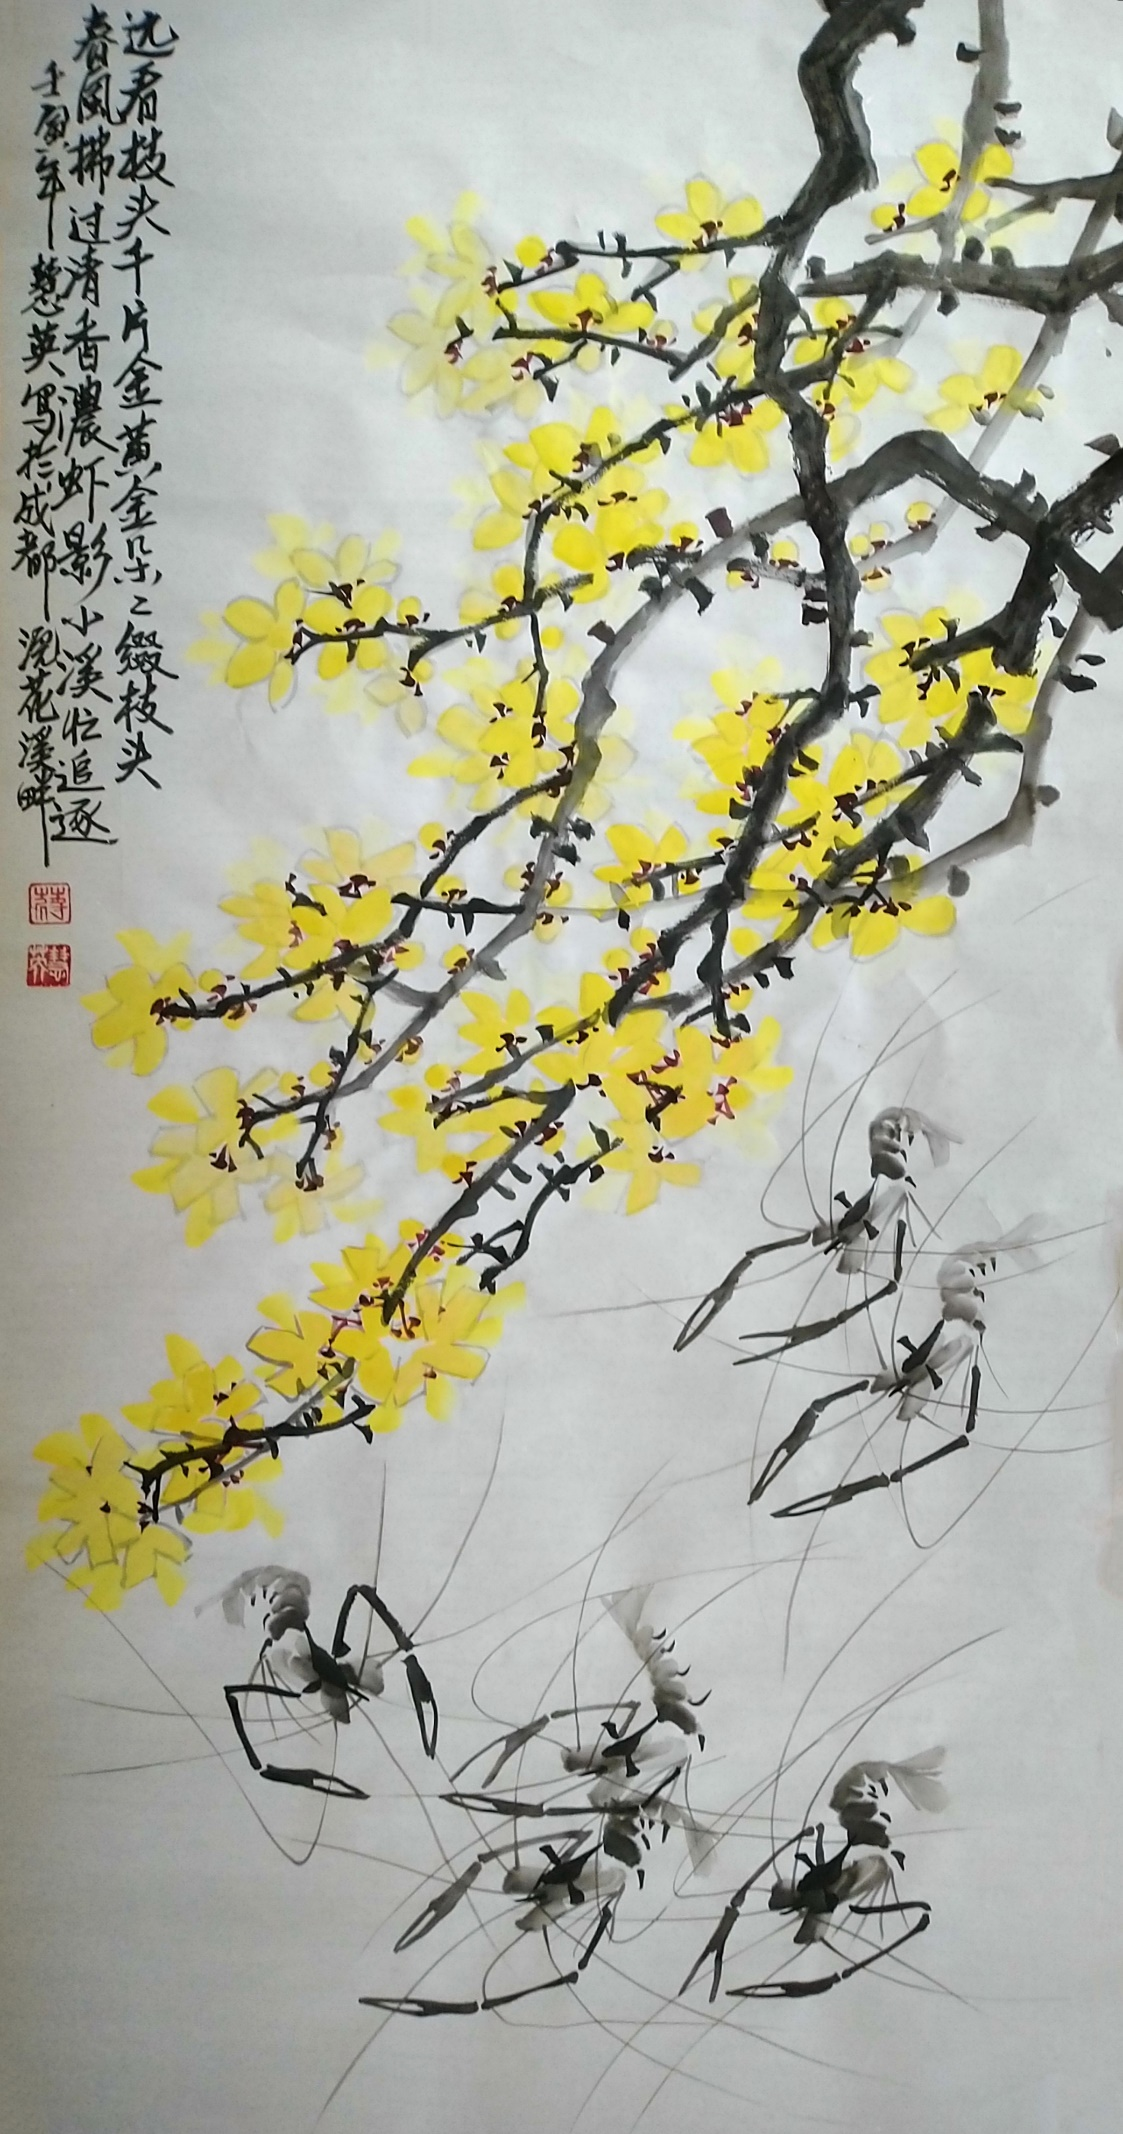 远看枝头千片金黄金朵〻缀枝头
春风拂过清香浓虾影小溪忙追逐
壬寅年慧英写於成都浣花溪畔